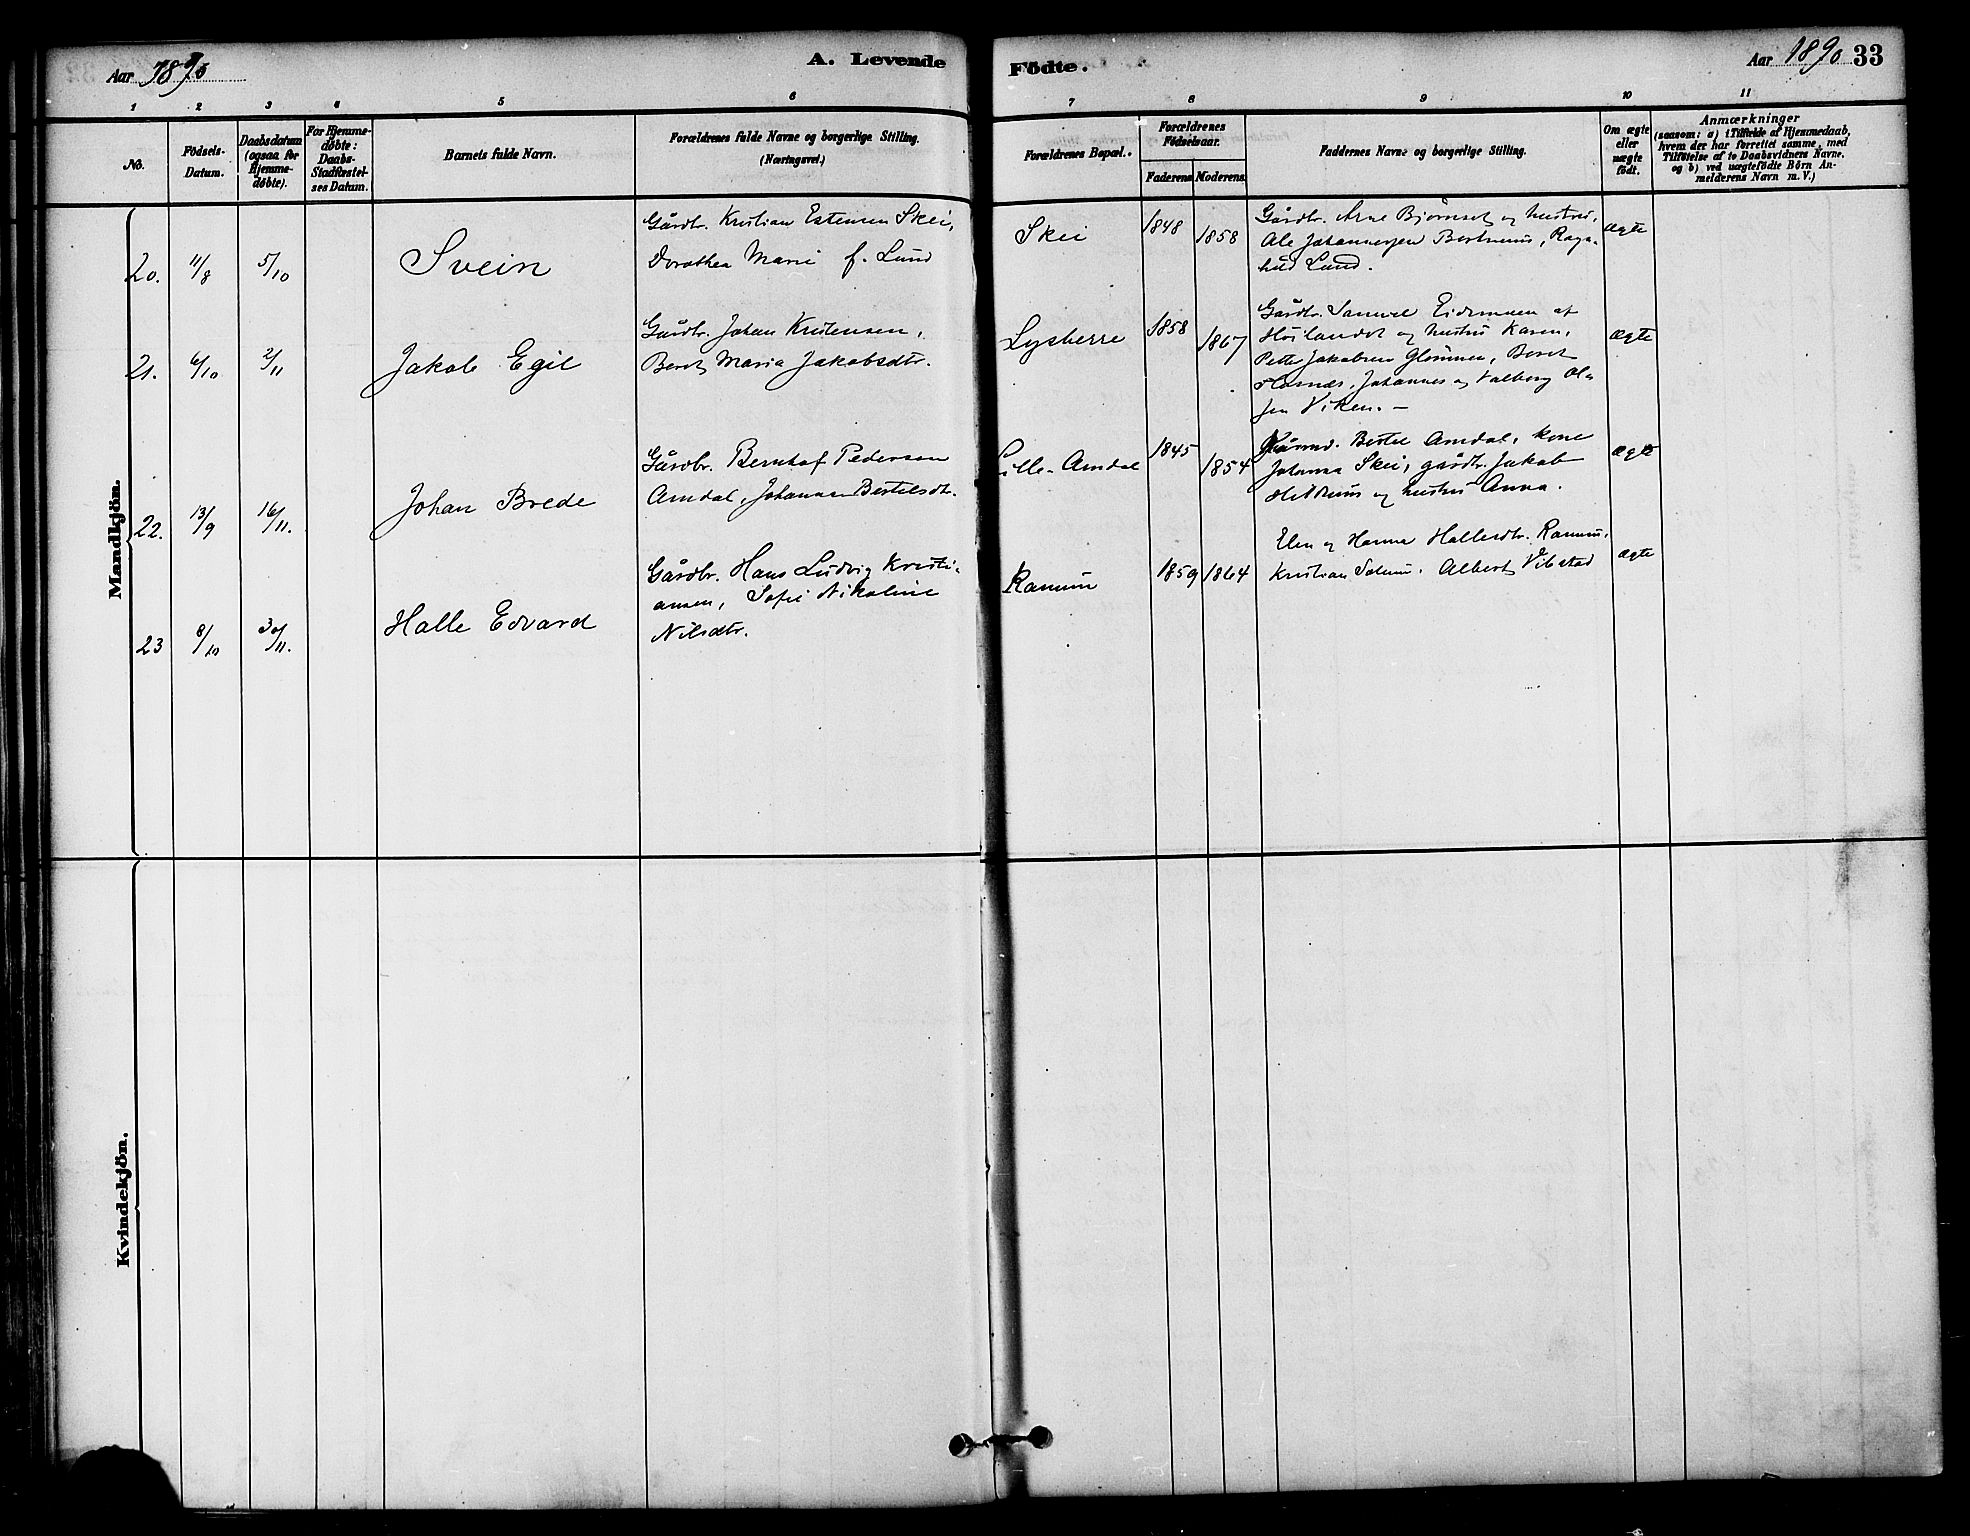 Aar 1890
A. Levende
Födte.
Aar 1890 33
1 2 3 4 5 6 7 8 9 10 11
No.
Födsels-
Datum.
Daabsdatum
(ogsaa for
Hjemme-
døbte).
For Hjemme-
døbte:
Daabs-
Stadfæstel-
ses Datum.
Barnets fulde Navn.
Forældrenes fulde Navne og borgerlige Stilling.
(Næringsvei.)
Forældrenes Bopæl.
Forældrenes
Födselsaar.
Faderens Moderens
Faddernes Navne og borgerlige Stilling.
Om ægte
eller
uægte
født.
Anmærkninger
(saasom: a) i Tilfælde af Hjemmedaab,
hvem der har forrettet samme, med
Tilföielse af to Daabsvidners Navne,
og b) ved uægtefödte Börn An-
melderens Navn m. V.)
Mandkjön.
20. 11/8 5/10
Svein
Gårdbr. Kristian Estensen Skei,
Dorothea Marie f. Lund
Skei
1848 1858
Gårdbr. Arne Bjørnset og hustru,
Ole Johannesen Bertnem, Ragn-
hild Lund.
ægte
21. 6/10 2/11
Jakob Egil
Gårdbr. Johan Kristensen,
Beret Maria Jakobsdtr.
Lysberre
1858 1867
Gårdbr. Samuel Eidsmuen af
Höilandet og hustru Karen,
Petter Jakobsen Glömmen, Beret
Johannes og Valborg Ol-
sen Viken. –
ægte
22. 13/9 16/11.
Johan Brede
Gårdbr. Bernhof Pedersen
Amdal, Johanna Bertelsdtr.
Lille-Amdal
1845 1854
Bertel Amdal, kone
Johanna Skei, gårdbr. Jakob
Hildrum og hustru Anna.
ægte
23 8/10 30/11.
Halle Edvard
Gårdbr. Hans Ludvig Kristi-
ansen, Sofie Nikoline
Nilsdtr.
Ranum
1859 1864
Elen og Hanna Hallesdtr. Ranum,
Kristian Solum. Albert Vibstad
ægte
Kvindekjön.